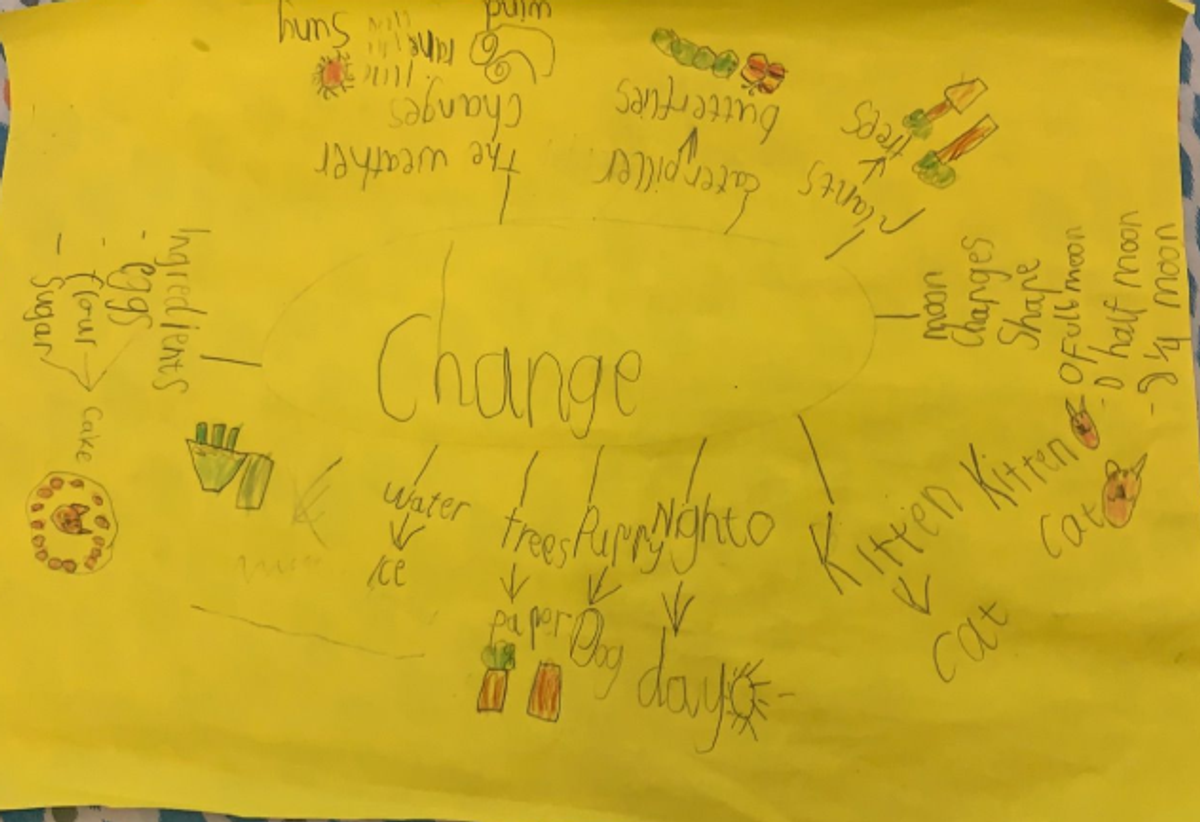 Change
the weather
changes
Suny
rane
wind
caterpiller
butterflies
plants
trees
moon
Changes
Shape
O Full moon
- D half moon
- 1/4 moon
Kitten
Cat
Kitten
Cat
Night
day
Puppy
Dog
trees
paper
Water
Ice
Ingredients
- eggs
- flour
- Sugar
cake